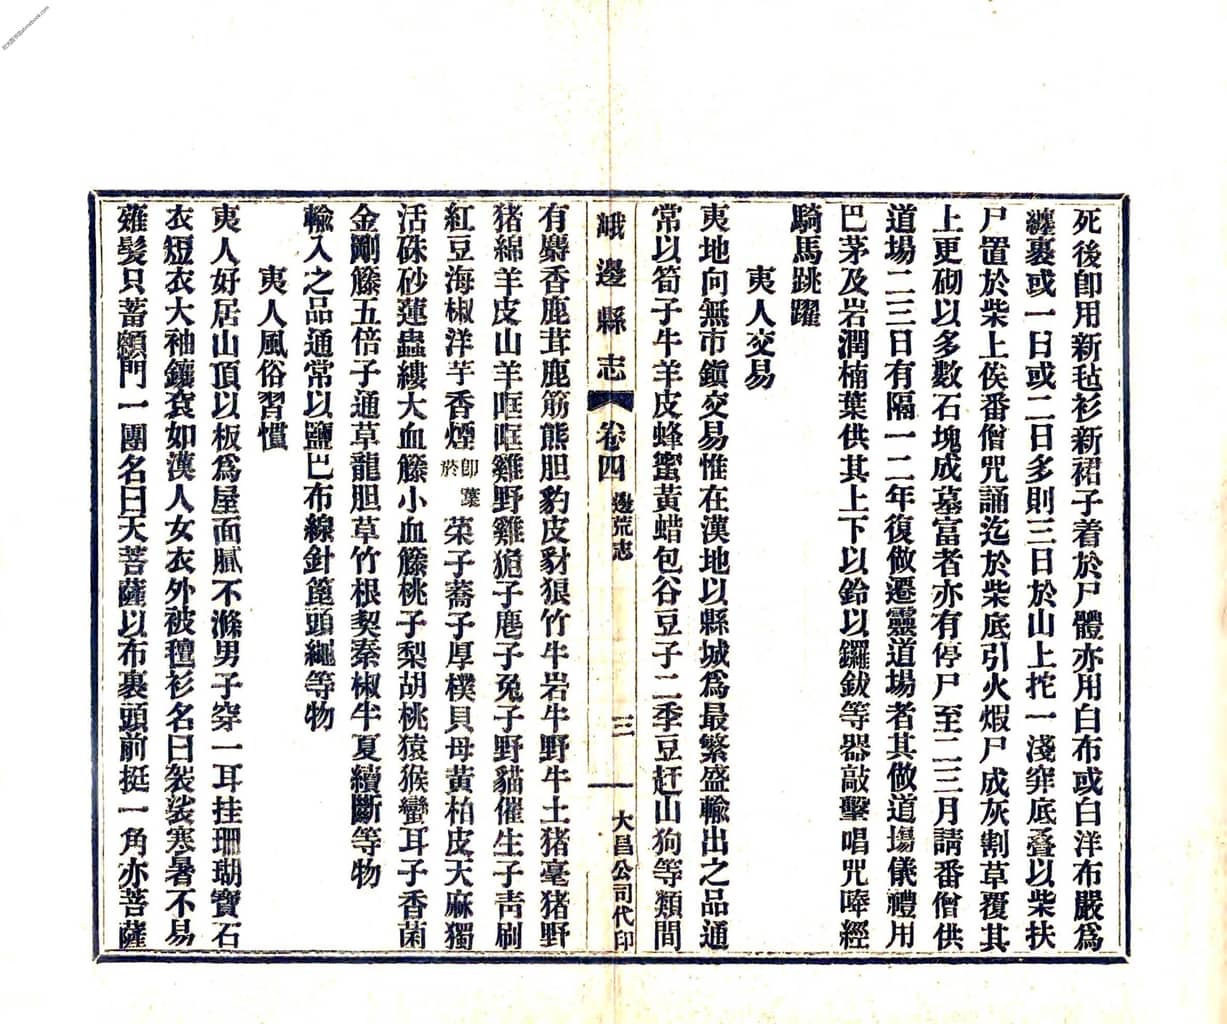 死後卽用新毡衫新裙子着於尸體亦用白布或白洋布嚴爲
纏裹或一日或二日多則三日於山上挖一淺穽底叠以柴扶
尸置於柴上俟番僧咒誦迄於柴底引火煆尸成灰割草覆其
上更砌以多數石塊成墓富者亦有停尸至二三月請番僧供
道場二三日有隔一二年復做遷靈道場者其做道塲儀禮用
巴茅及岩澗楠葉供其上下以鈴以鑼鈸等器敲擊唱咒唪經
騎馬跳躍
夷人交易
夷地向無市鎭交易惟在漢地以縣城爲最繁盛輸出之品通
常以筍子牛羊皮蜂蜜黃蜡包谷豆子二季豆赶山狗等類間
峨邊縣志
卷四
邊荒志
三
大昌公司代印
有麝香鹿茸鹿筋熊胆豹皮豺狠竹牛岩牛野牛土猪毫猪野
猪綿羊皮山羊哐哐雞野雞獂子麂子兔子野貓催生子靑刷
紅豆海椒洋芋香煙卽葉菸菜子蕎子厚樸貝母黃柏皮天麻獨
活硃砂蓮蟲縷大血籐小血籐桃子梨胡桃猿猴蠻耳子香菌
金剛籐五倍子通草龍胆草竹根契秦椒半夏續斷等物
輸入之品通常以鹽巴布線針篦頭繩等物
夷人風俗習慣
夷人好居山頂以板爲屋面膩不滌男子穿一耳挂珊瑚寶石
衣短衣大袖鑲袞如漢人女衣外被氊衫名曰袈裟寒暑不易
薙髮只蓄顖門一團名曰天菩薩以布裹頭前挺一角亦菩薩